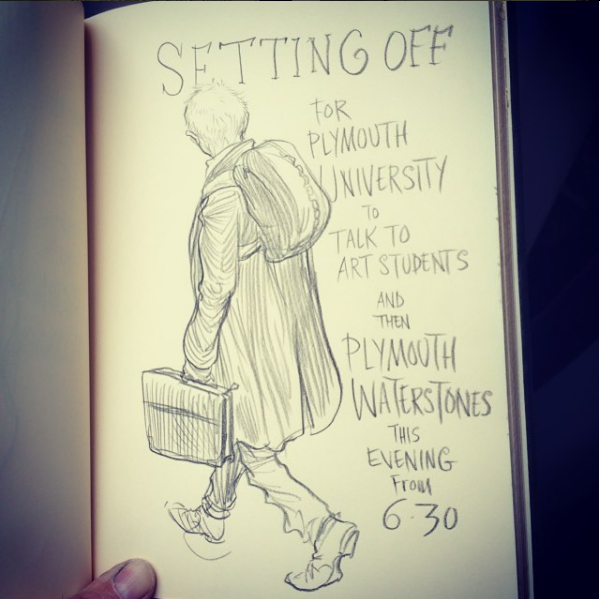 SETTING OFF
FOR
PLYMOUTH
UNIVERSITY
TO
TALK TO
ART STUDENTS
AND
THEN
PLYMOUTH
WATERSTONES
THIS
EVENING
From
6.30